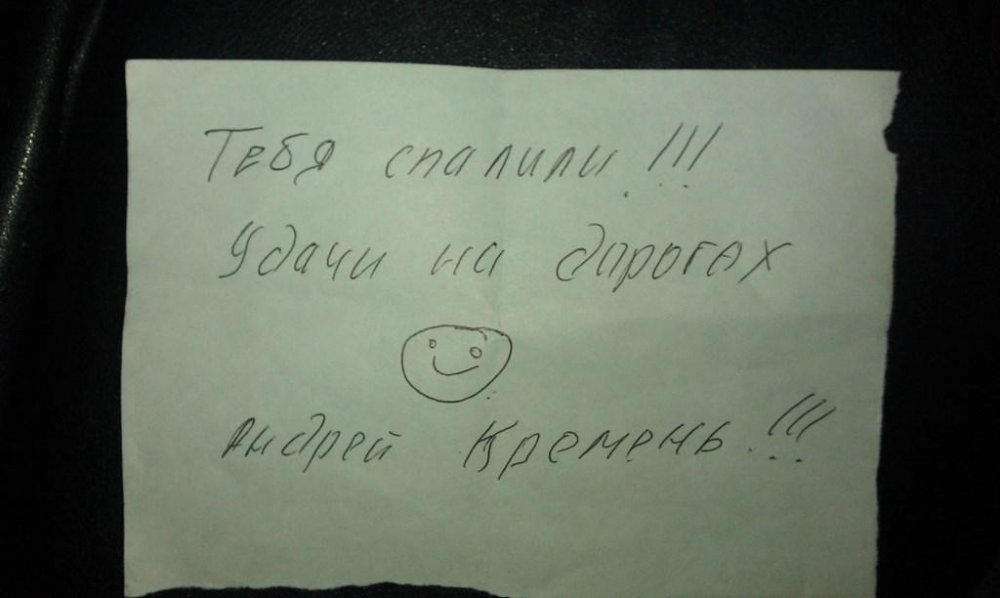 Тебя спалили!!!
Удачи на дорогах
Андрей Кремень!!!